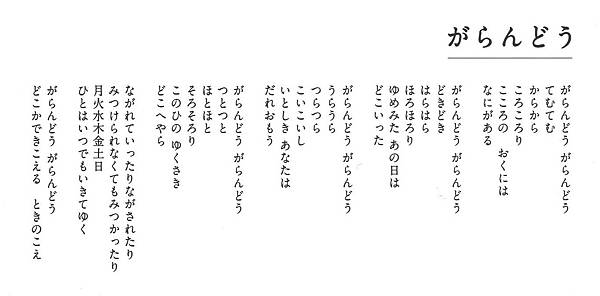 がらんどう
がらんどう がらんどう
てむてむ
からから
ころころり
こころの おくには
なにがある
がらんどう がらんどう
どきどき
はらはら
ほろほろり
ゆめみた あの日は
どこいった
がらんどう がらんどう
うらうら
つらつら
こいこいし
いとしき あなたは
だれおもう
がらんどう がらんどう
つとつと
ほとほと
そろそろり
このひの ゆくさき
どこへやら
ながれていったりながされたり
みつけられなくてもみつかったり
月火水木金土日
ひとはいつでもいきてゆく
がらんどう がらんどう
どこかできこえる ときのこえ